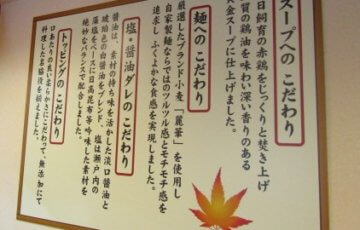 スープへの こだわり
日飼育の赤鶏をじっくりと焚き上げ
質の鶏油を味わい深い香りのある
金スープに仕上げました。
麺への こだわり
厳選したブランド小麦「麗華」を使用し
自家製麺ならではのツルツル感とモチモチ感を
追求し、ふくよかな食感を実現しました。
塩・醤油ダレの こだわり
醤油は、素材の持ち味を活かした淡口醤油と
琥珀色の白醤油をブレンド、塩は瀬戸内の
藻塩をベースに日高昆布等吟味した素材を
絶妙なバランスで配合しました。
トッピングの こだわり
口あたりの良い柔らかさにこだわって、無添加にて
料理した名脇役を揃えました。